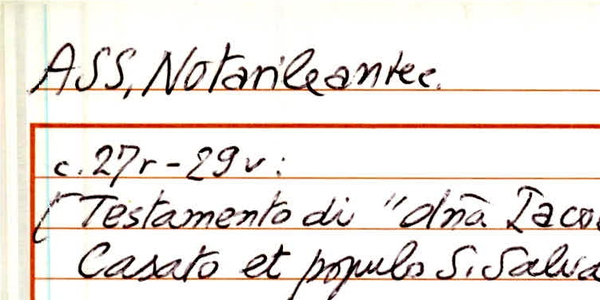 ASS, Notarile antec.
c. 27r - 29v:
[Testamento di "dn̄a Iaco
Casato et populo S. Salva